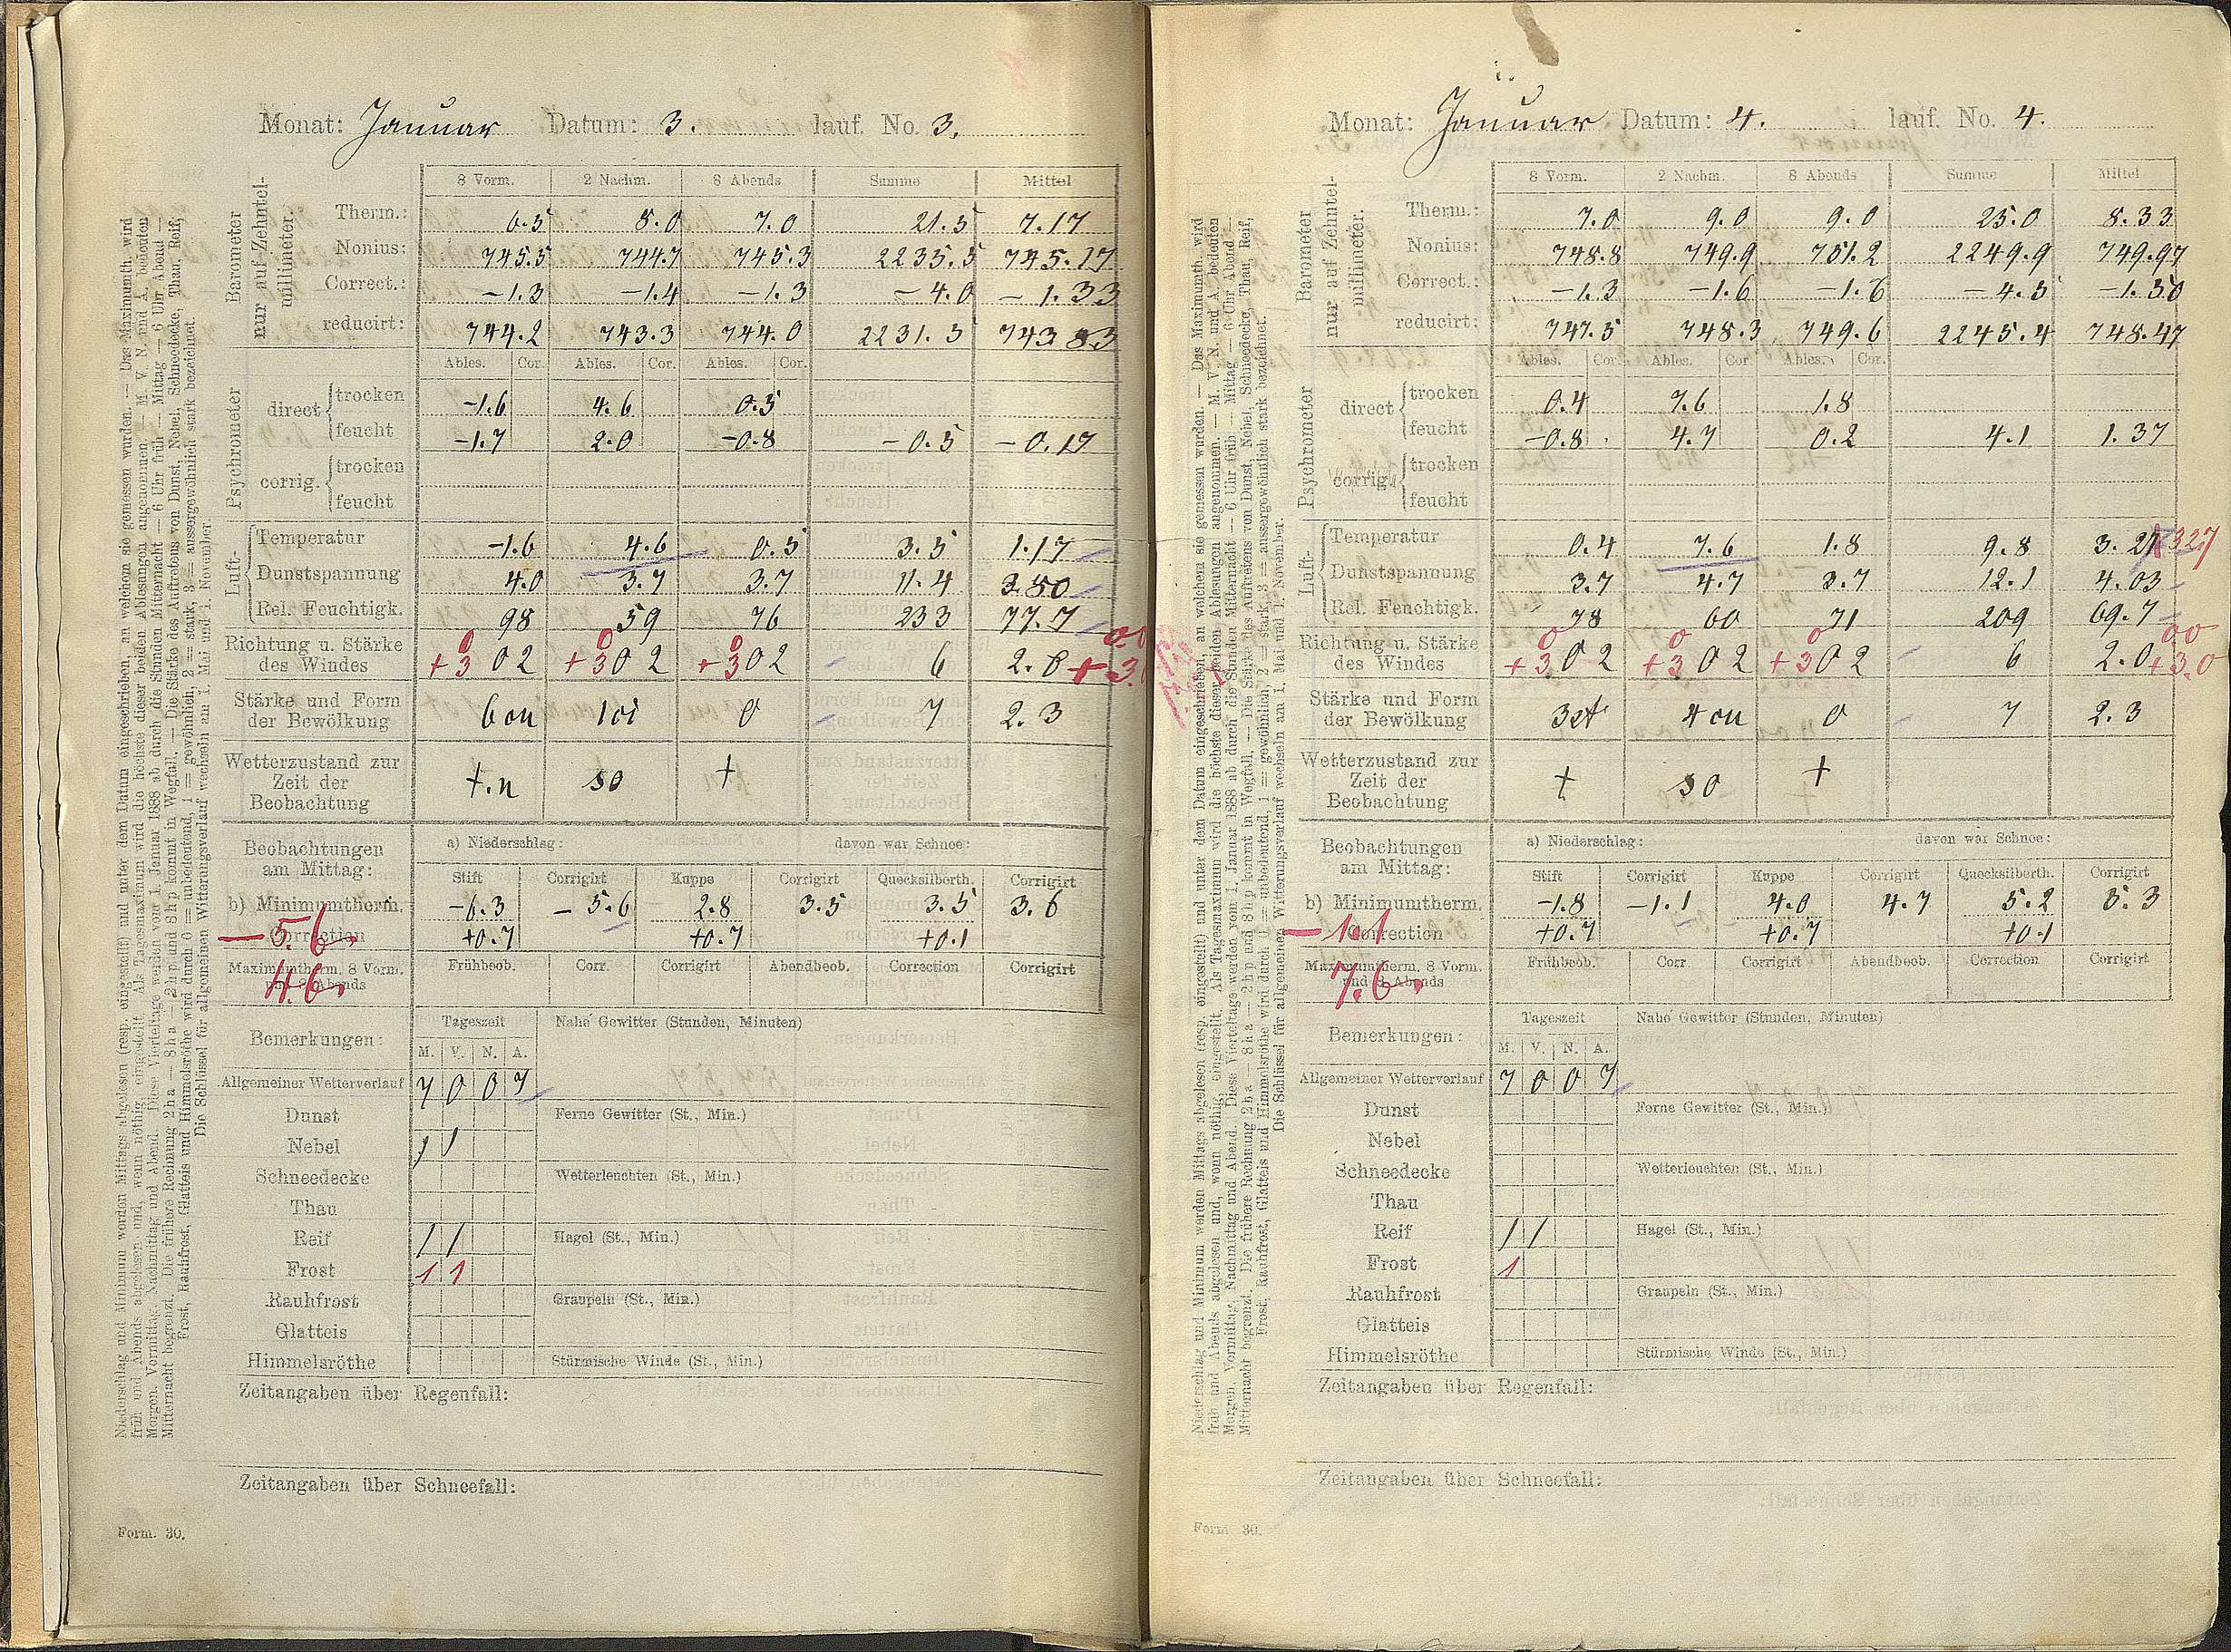 Monat: Januar Datum: 3. lauf. No. 3.
8 Vorm. 2 Nachm. 8 Abends Summe Mittel
Barometer nur auf Zehntel-millimeter.
Therm.: 6.5 8.0 7.0 21.5 7.17
Nonius: 745.5 744.7 745.3 2235.5 745.17
Correct.: -1.3 -1.4 -1.3 -4.0 -1.33
reducirt: 744.2 743.3 744.0 2231.5 743.83
Ables. Cor. Ables. Cor. Ables. Cor.
Psychrometer
direct trocken -1.6 4.6 0.5
feucht -1.7 2.0 -0.8 -0.5 -0.17
corrig. trocken
feucht
Luft-
Temperatur -1.6 4.6 0.5 3.5 1.17
Dunstspannung 4.0 3.7 3.7 11.4 3.80
Rel. Feuchtigk. 98 59 76 233 77.7
0 0 0 0.0
Richtung u. Stärke des Windes +3 02 +3 02 +3 02 6 2.0 +3.
Stärke und Form der Bewölkung 6cu 1ci 0 7 2.3
Wetterzustand zur Zeit der Beobachtung +.n so +
Beobachtungen am Mittag:
a) Niederschlag: davon war Schnee:
Stift Corrigirt Kuppe Corrigirt Quecksilberth. Corrigirt
b) Minimumtherm. -6.3 -5.6 2.8 3.5 3.5 3.6
Correction +0.7 +0.7 +0.1
-5.6
Maximumtherm. 8 Vorm. und 8 Abends
4.6
Frühbeob. Corr. Corrigirt Abendbeob. Correction Corrigirt
Bemerkungen: Tageszeit Nahe Gewitter (Stunden, Minuten)
M. V. N. A.
Allgemeiner Wetterverlauf 7 0 0 7
Dunst Ferne Gewitter (St., Min.)
Nebel 1 1
Schneedecke Wetterleuchten (St., Min.)
Thau
Reif 1 1 Hagel (St., Min.)
Frost 1 1
Rauhfrost Graupeln (St., Min.)
Glatteis
Himmelsröthe Stürmische Winde (St., Min.)
Zeitangaben über Regenfall:
Zeitangaben über Schneefall:
Form. 30.
Niederschlag und Minimum werden Mittags abgelesen (resp. eingestellt) und unter dem Datum eingeschrieben, an welchem sie gemessen wurden. — Das Maximumth. wird
früh und Abends abgelesen und, wenn nöthig, eingestellt. Als Tagesmaximum wird die höchste dieser beiden Ablesungen angenommen. — M. V. N. und A. bedeuten
Morgen, Vormittag, Nachmittag und Abend. Diese Vierteltage werden vom 1. Januar 1888 ab durch die Stunden Mitternacht — 6 Uhr früh — Mittag — 6 Uhr Abend —
Mitternacht begrenzt. Die frühere Rechnung 2ha — 8ha — 2hp und 8hp kommt in Wegfall. — Die Stärke des Auftretens von Dunst, Nebel, Schneedecke, Thau, Reif,
Frost, Rauhfrost, Glatteis und Himmelsröthe wird durch 0 = unbedeutend, 1 = gewöhnlich, 2 = stark, 3 = aussergewöhnlich stark bezeichnet.
Die Schlüssel für allgemeinen Witterungsverlauf wechseln am 1. Mai und 1. November.
Monat: Januar Datum: 4. lauf. No. 4.
8 Vorm. 2 Nachm. 8 Abends Summe Mittel
Barometer nur auf Zehntel-millimeter.
Therm.: 7.0 9.0 9.0 25.0 8.33
Nonius: 748.8 749.9 751.2 2249.9 749.97
Correct.: -1.3 -1.6 -1.6 -4.5 -1.50
reducirt: 747.5 748.3 749.6 2245.4 748.47
Ables. Cor. Ables. Cor. Ables. Cor.
Psychrometer
direct trocken 0.4 7.6 1.8
feucht -0.8 4.7 0.2 4.1 1.37
corrig. trocken
feucht
Luft-
Temperatur 0.4 7.6 1.8 9.8 3.27 3.27
Dunstspannung 3.7 4.7 3.7 12.1 4.03
Rel. Feuchtigk. 78 60 71 209 69.7
0 0 0 00
Richtung u. Stärke des Windes +3 02 +3 02 +3 02 6 2.0 +3.0
Stärke und Form der Bewölkung 3st 4cu 0 7 2.3
Wetterzustand zur Zeit der Beobachtung + so +
Beobachtungen am Mittag:
a) Niederschlag: davon war Schnee:
Stift Corrigirt Kuppe Corrigirt Quecksilberth. Corrigirt
b) Minimumtherm. -1.8 -1.1 4.0 4.7 5.2 5.3
Correction +0.7 +0.7 +0.1
-1.1
Maximumtherm. 8 Vorm. und 8 Abends
7.6
Frühbeob. Corr. Corrigirt Abendbeob. Correction Corrigirt
Bemerkungen: Tageszeit Nahe Gewitter (Stunden, Minuten)
M. V. N. A.
Allgemeiner Wetterverlauf 7 0 0 7
Dunst Ferne Gewitter (St., Min.)
Nebel
Schneedecke Wetterleuchten (St., Min.)
Thau
Reif 1 1 Hagel (St., Min.)
Frost 1
Rauhfrost Graupeln (St., Min.)
Glatteis
Himmelsröthe Stürmische Winde (St., Min.)
Zeitangaben über Regenfall:
Zeitangaben über Schneefall:
Form. 30.
Niederschlag und Minimum werden Mittags abgelesen (resp. eingestellt) und unter dem Datum eingeschrieben, an welchem sie gemessen wurden. — Das Maximumth. wird
früh und Abends abgelesen und, wenn nöthig, eingestellt. Als Tagesmaximum wird die höchste dieser beiden Ablesungen angenommen. — M. V. N. und A. bedeuten
Morgen, Vormittag, Nachmittag und Abend. Diese Vierteltage werden vom 1. Januar 1888 ab durch die Stunden Mitternacht — 6 Uhr früh — Mittag — 6 Uhr Abend —
Mitternacht begrenzt. Die frühere Rechnung 2ha — 8ha — 2hp und 8hp kommt in Wegfall. — Die Stärke des Auftretens von Dunst, Nebel, Schneedecke, Thau, Reif,
Frost, Rauhfrost, Glatteis und Himmelsröthe wird durch 0 = unbedeutend, 1 = gewöhnlich, 2 = stark, 3 = aussergewöhnlich stark bezeichnet.
Die Schlüssel für allgemeinen Witterungsverlauf wechseln am 1. Mai und 1. November.